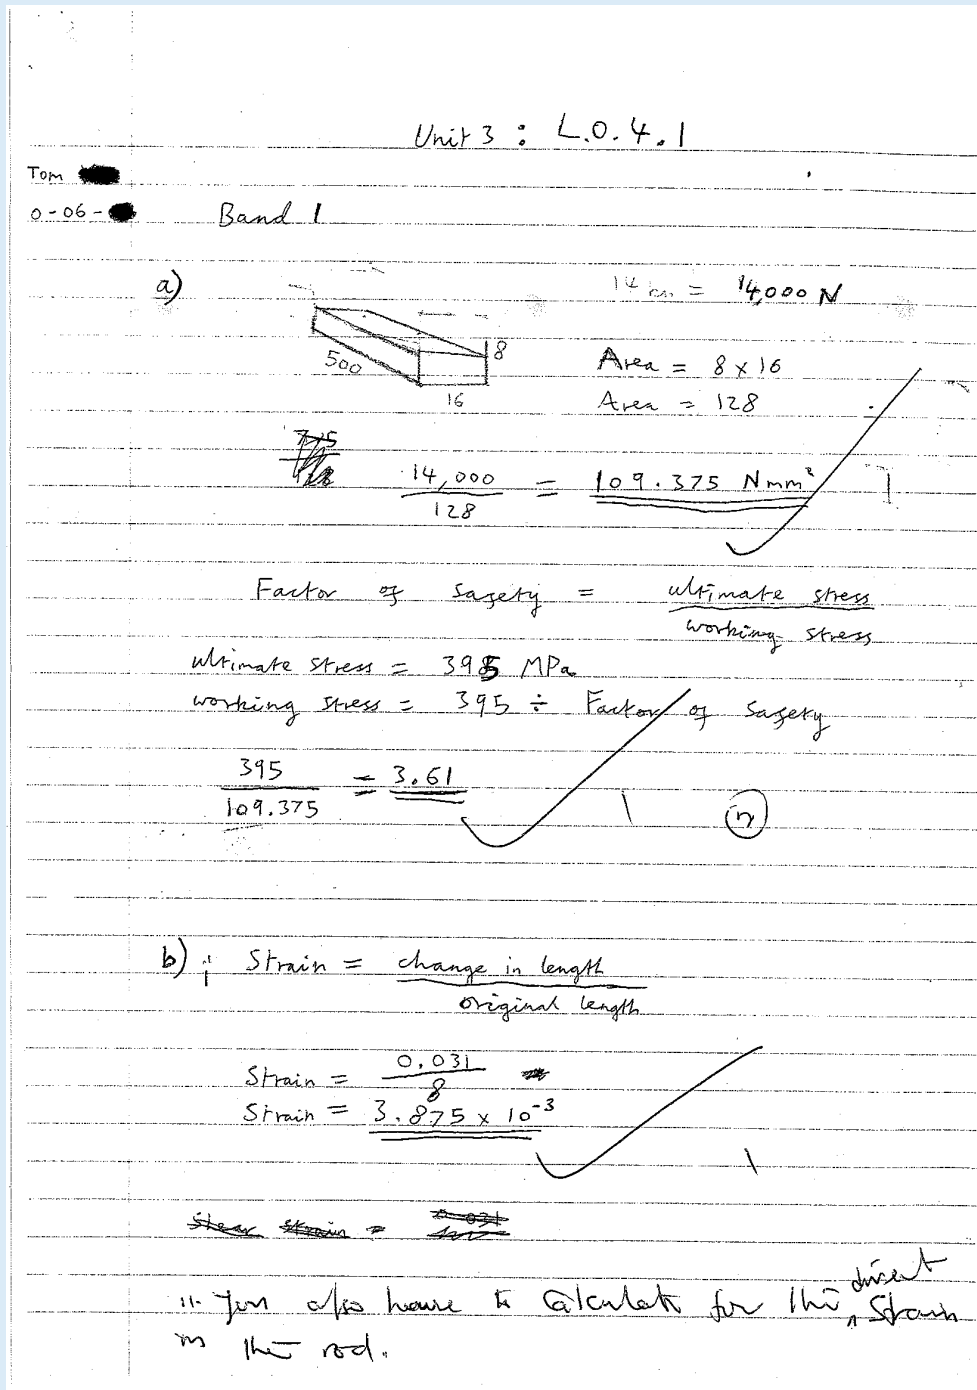 Unit 3 : L.O.4.1
Tom
0-06-
Band 1
a)
14 kN = 14,000 N
500
8
16
Area = 8 x 16
Area = 128
14,000
128
= 109.375 Nmm²
1
Factor of Safety = ultimate stress
working stress
ultimate stress = 395 MPa
working stress = 395 ÷ Factor of Safety
395
109.375
= 3.61
1
b) i Strain = change in length
original length
Strain = 0.031
8
Strain = 3.875 x 10-3
1
Shear Strain = 0.031
ii. You also have to Calculate for the direct Strain
in the rod.